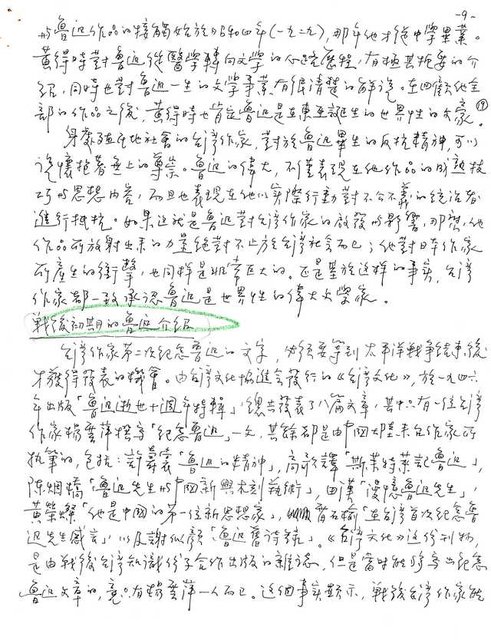 -9-
與魯迅作品的接觸始於昭和四年(一九二九),那年他才從中學畢業。
黃得時對魯迅從醫學轉向文學的心路歷程,有極其扼要的介
紹,同時也對魯迅一生的文學事業有很清楚的解說。在回顧他全
部的作品之後,黃得時也肯定魯迅是在東亞誕生的世界性的大文豪。⑨
身處殖民地社會的台灣作家,對於魯迅畢生的反抗精神,可以
說懷抱著無上的尊崇。魯迅的偉大,不僅表現在他作品的成熟技
巧與思想內容,而且也表現在他以實際行動對不公不義的統治者
進行抵抗。如果這就是魯迅對台灣作家的啟發與影響,那麼,他
作品所放射出來的力量絕對不止於台灣社會而已;他對日本作家
所產生的衝擊,也同樣是非常巨大的。正是基於這樣的事實,台灣
作家都一致承認魯迅是世界性的偉大文學家。
戰後初期的魯迅介紹
台灣作家第二次紀念魯迅的文字,必須要等到太平洋戰爭結束後
才獲得發表的機會。由台灣文化協進會發行的《台灣文化》,於一九四六
年出版「魯迅逝世十週年特輯」,總共發表了八篇文章,其中只有一位台灣
作家楊雲萍撰寫「紀念魯迅」一文,其餘都是由中國大陸來台作家所
執筆的,包括:許壽裳「魯迅的精神」,高歌譯「斯茉特萊記魯迅」,
陳烟橋「魯迅先生的中國新興木刻藝術」,田漢「漫憶魯迅先生」,
黃榮燦「他是中國的第一位新思想家」,雷石榆「在台灣首次紀念魯
迅先生感言」,以及謝似顏「魯迅舊詩錄」。《台灣文化》這份刊物,
是由戰後台灣知識份子合作出版的雜誌,但是當時能夠寫出紀念
魯迅文章的,竟只有楊雲萍一人而已。這個事實顯示,戰後台灣作家能